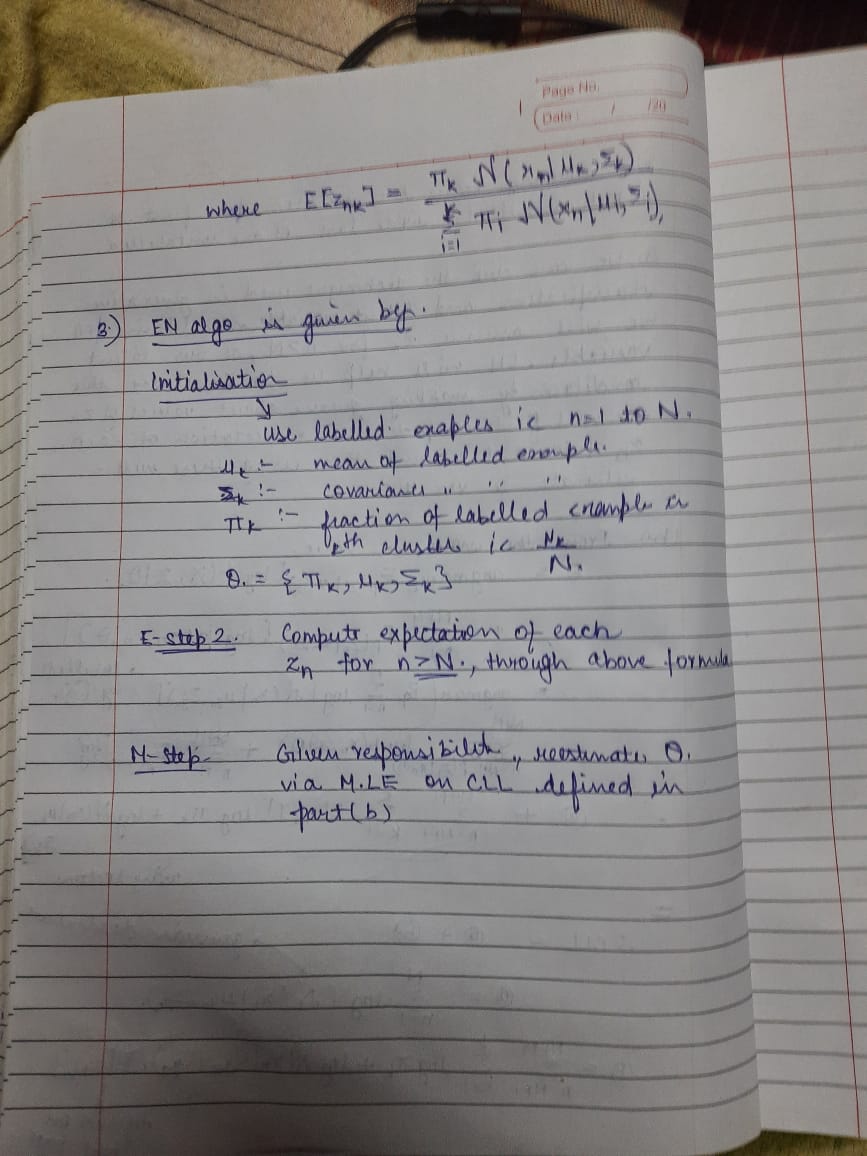 Page No.
Date: / /20
where E[z_nk] = π_k N(x_n|μ_k, Σ_k) / Σ_{i=1}^{K} π_i N(x_n|μ_i, Σ_i),
3.) EN algo is given by.
Initialisation
↓
use labelled exaples ie n=1 to N.
μ_k :- mean of labelled example.
Σ_k :- covariance " " "
π_k :- fraction of labelled example in
kth cluster ie N_k/N.
θ. = {π_k, μ_k, Σ_k}
E-step 2. Compute expectation of each
z_n for n>N., through above formula
M-step Given, reestimate, θ.
via M.LE on CLL defined in
part(b)